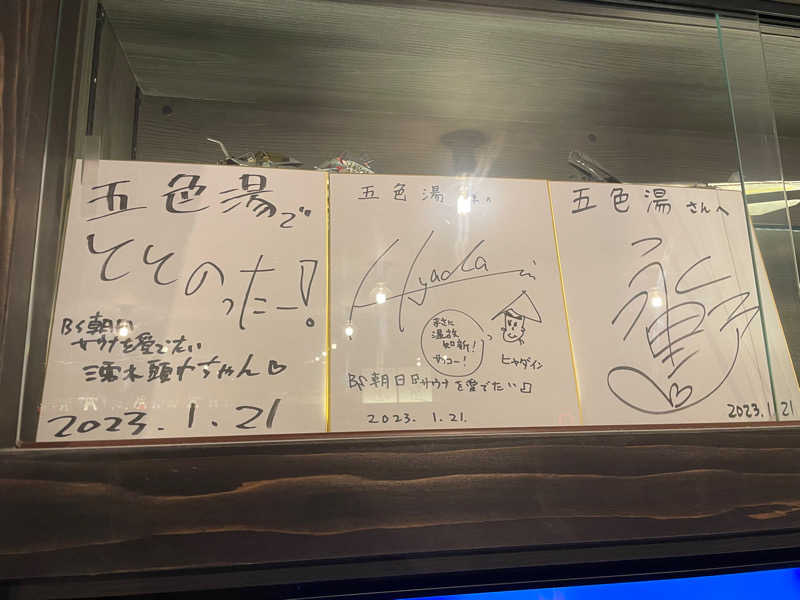 五色湯で
ととのったー!
BS朝日
サウナを愛でたい
濡れ頭巾ちゃん♡
2023.1.21
五色湯さんへ
Hyada in
まさに
温故
知新!
サッコー!
ヒャダイン
BS朝日『サウナを愛でたい』
2023.1.21.
五色湯さんへ
2023.1.21